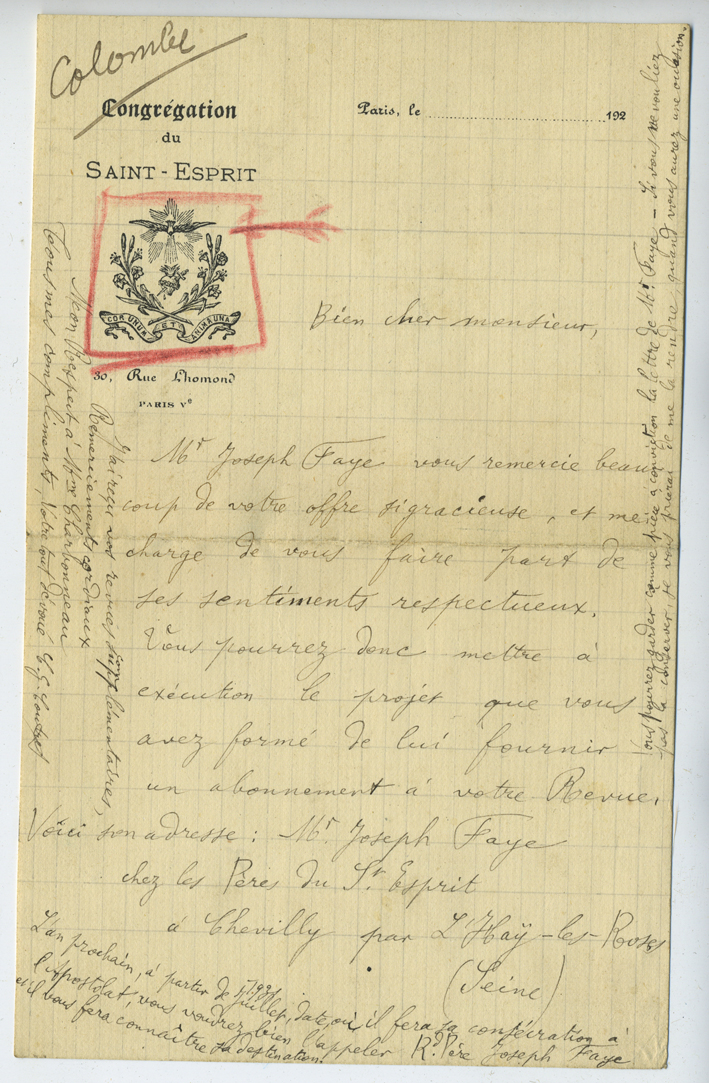 Colombe
Congrégation
du
SAINT-ESPRIT
Paris, le ........ 192
COR UNUM ET ANIMA UNA
30, Rue Lhomond
PARIS Ve
Bien cher monsieur,
Mr Joseph Faye vous remercie beau
coup de votre offre si gracieuse, et me
charge de vous faire part de
ses sentiments respectueux.
Vous pourrez donc mettre à
exécution le projet que vous
avez formé de lui fournir
un abonnement à votre Revue.
Voici son adresse : Mr. Joseph Faye
chez les Pères du St Esprit
à Chevilly par L'Haÿ-les-Roses
(Seine)
L'an prochain, à partir de Juillet 1931, date où il fera sa consécration à
l'Apostolat, vous voudrez bien l'appeler Rd. Père Joseph Faye
et il vous fera connaître sa destination.
J'ai reçu vos revues supplémentaires,
Remerciements cordiaux
Mon Respect à Mme Charbonneau
Tous mes compliments, Votre tout dévoué
Vous pourrez garder comme pièce à conviction la lettre de Mr Faye – Si vous ne vouliez
pas la conserver, je vous prierai de me la rendre quand vous aurez une occasion.